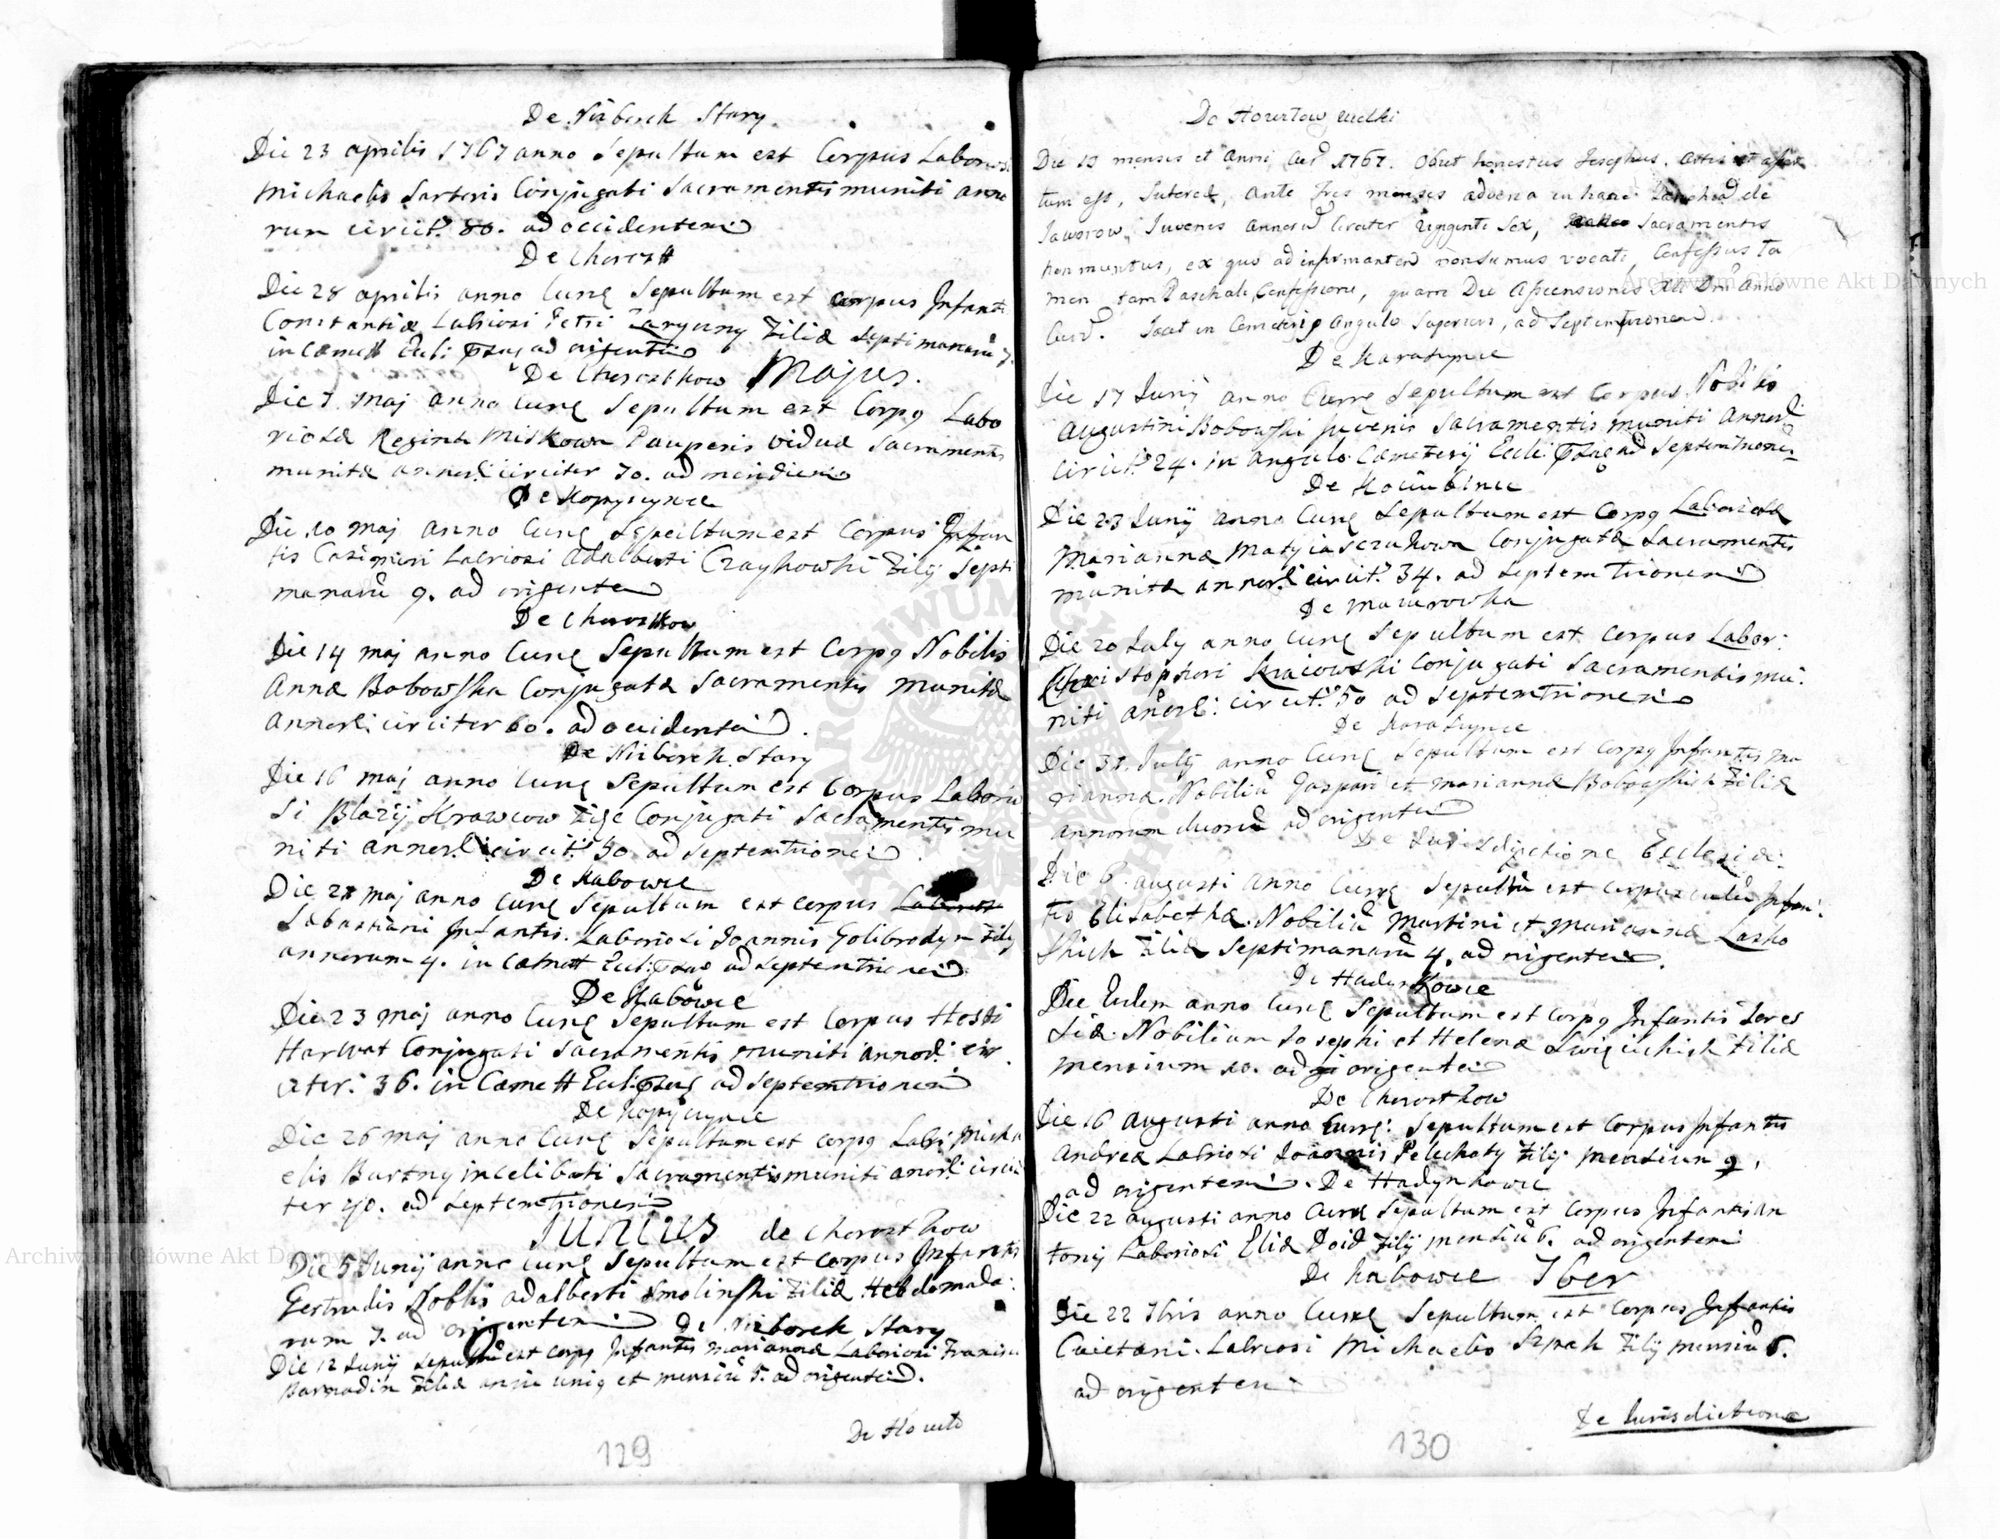 De Niżborek Stary
Die 23 aprilis 1767 anno Sepultum est Corpus Laboriosi
Michaelis Sartoris Conjugati Sacramentis muniti anno
rum circit. 80. ad occidentem
De Chorost
Die 28 aprilis anno Curr Sepultum est corpus Infantis
Constantiæ Labriosi Petri Zaryczny Filiæ Septimanarū 7.
in Cæmett Ecli: ad origentē
De Chorostkow Majus.
Die 7. maj anno Curr Sepultum est Corpq Labo
riosæ Reginæ Miskowa Pauperis viduæ Sacramentis
munitæ annor circiter 70. ad meridiem
De Kopyczynce
Die 10 maj anno Curr Sepultum est Corpus Infan
tis Casimiri Labriosi Adalberti Czaykowski Filij Septi
manarū 9. ad origentē
De Chorostkow
Die 14 maj anno Curr Sepultum est Corpq Nobilis
Annæ Bobowska Conjugatæ Sacramentis munitæ
Annor circiter 60. ad occidentē.
De Niżborek Stary
Die 16 maj anno Curr Sepultum est Corpus Laborio
si Blazij Krawcow Conjugati Sacramentis mu
niti annor circit. 50. ad Septemtrionē
De Kabowce
Die 21 maj anno Curr Sepultum est corpus
Sebastiani Infantis. Laboriosi Joannis Golibrodyn Filij
annorum 4. in Cæmett Ecli: ad Septentrionē
De Kabowce
Die 23 maj anno Curr Sepultum est Corpus
Harwat Conjugati Sacramentis muniti annor: cir
citer: 36. in Cæmett Ecli: ad Septemtrionē
De Kopyczynce
Die 26 maj anno Curr Sepultum est corpq Labri Micha
elis in celibati Sacramentis muniti anor: circi
ter 40. ad Septemtrionē
Junius de Chorostkow
Die 5 Junij anno Curr Sepultum est corpus Infantis
Gertrudis Noblis adalberti Smolinski Filiæ Hebdomada:
rum 7. ad origentem De Niżborek Stary
Die 12 Junij Sepultū est corpq Infantis Mariannæ Laboriosi Francisci
Filiæ anni uniq et mensiū 5. ad origentē.
De Howiło
129
De Howiłow wielki
Die 13 mensis et Anni Curr 1767. Obiit honestus Josephus.
tum est, Ante Tres menses advena in hanc Parochiā de
Jaworow, Juvenis Annorū Circiter Viginti Sex, Sacramentis
non munitus, ex quo ad infirmantem non sumus vocati, Confessus ta
men tam Paschali Confessione, quam Die Ascensionis Dni Anno
Curr. Jacet in Cemeterij Angulo Superiori, ad Septemtrionem.
De Karaszynce
Die 17 Junij anno Curre Sepultum est Corpus Nobilis
Augustini Bobowski Juvenis Sacramentis muniti Annor
circit. 24. in angulo Cæmeterij Ecli: ad Septemtrionē
De Kociubince
Die 23 Junij anno Curr Sepultum est Corpq Laboriosæ
Mariannæ Matyiaszukowa Conjugatæ Sacramentis
munitæ annor: circit. 34. ad Septemtrionem
De Mazurowka
Die 20 July anno Curr Sepultum est corpus Labor:
Christophori Kraiowski Conjugati Sacramentis mu:
niti añor: circit. 50 ad Septemtrionem
De Karaszynce
Die 31. July anno Curr Sepultum est corpq Infantis Ma
riannæ. Nobiliū Gaspari et Mariannæ Bobowskich Filiæ
annorum duorū ad origentē
De Jurisdictione Ecclesiæ:
Die 6. augusti anno Curr Sepultū est corpusculū Infan:
tis Elisabethæ. Nobiliū Martini et Mariannæ Lasko
skich Filiæ Septimanarū 4. ad origentē.
De Hadynkowce
Die Eadem anno Curr Sepultum est Corpq Infantis Teres
siæ. Nobilium Josephi et Helenæ Swięcickich Filiæ
mensium 10. ad origentē
De Chorostkow
Die 16 augusti anno Curr: Sepultum est Corpus Infantis
Andreæ Labriosi Joannis Pelechaty Filij Mensium 9.
ad origentem. De Hadynkowce
Die 22 augusti anno Curr Sepultum est Corpus Infantis An
tonij Laboriosi Eliæ Doid Filij mensiū 6. ad origentem
De Kabowce 7ber
Die 22 7bris anno Curr Sepultum est Corpus Infantis
Caietani. Labriosi Michaelis Szpak Filij mensiū 6.
ad origentem
De Jurisdictione
130
Archiwum Główne Akt Dawnych
Archiwum Główne Akt Dawnych